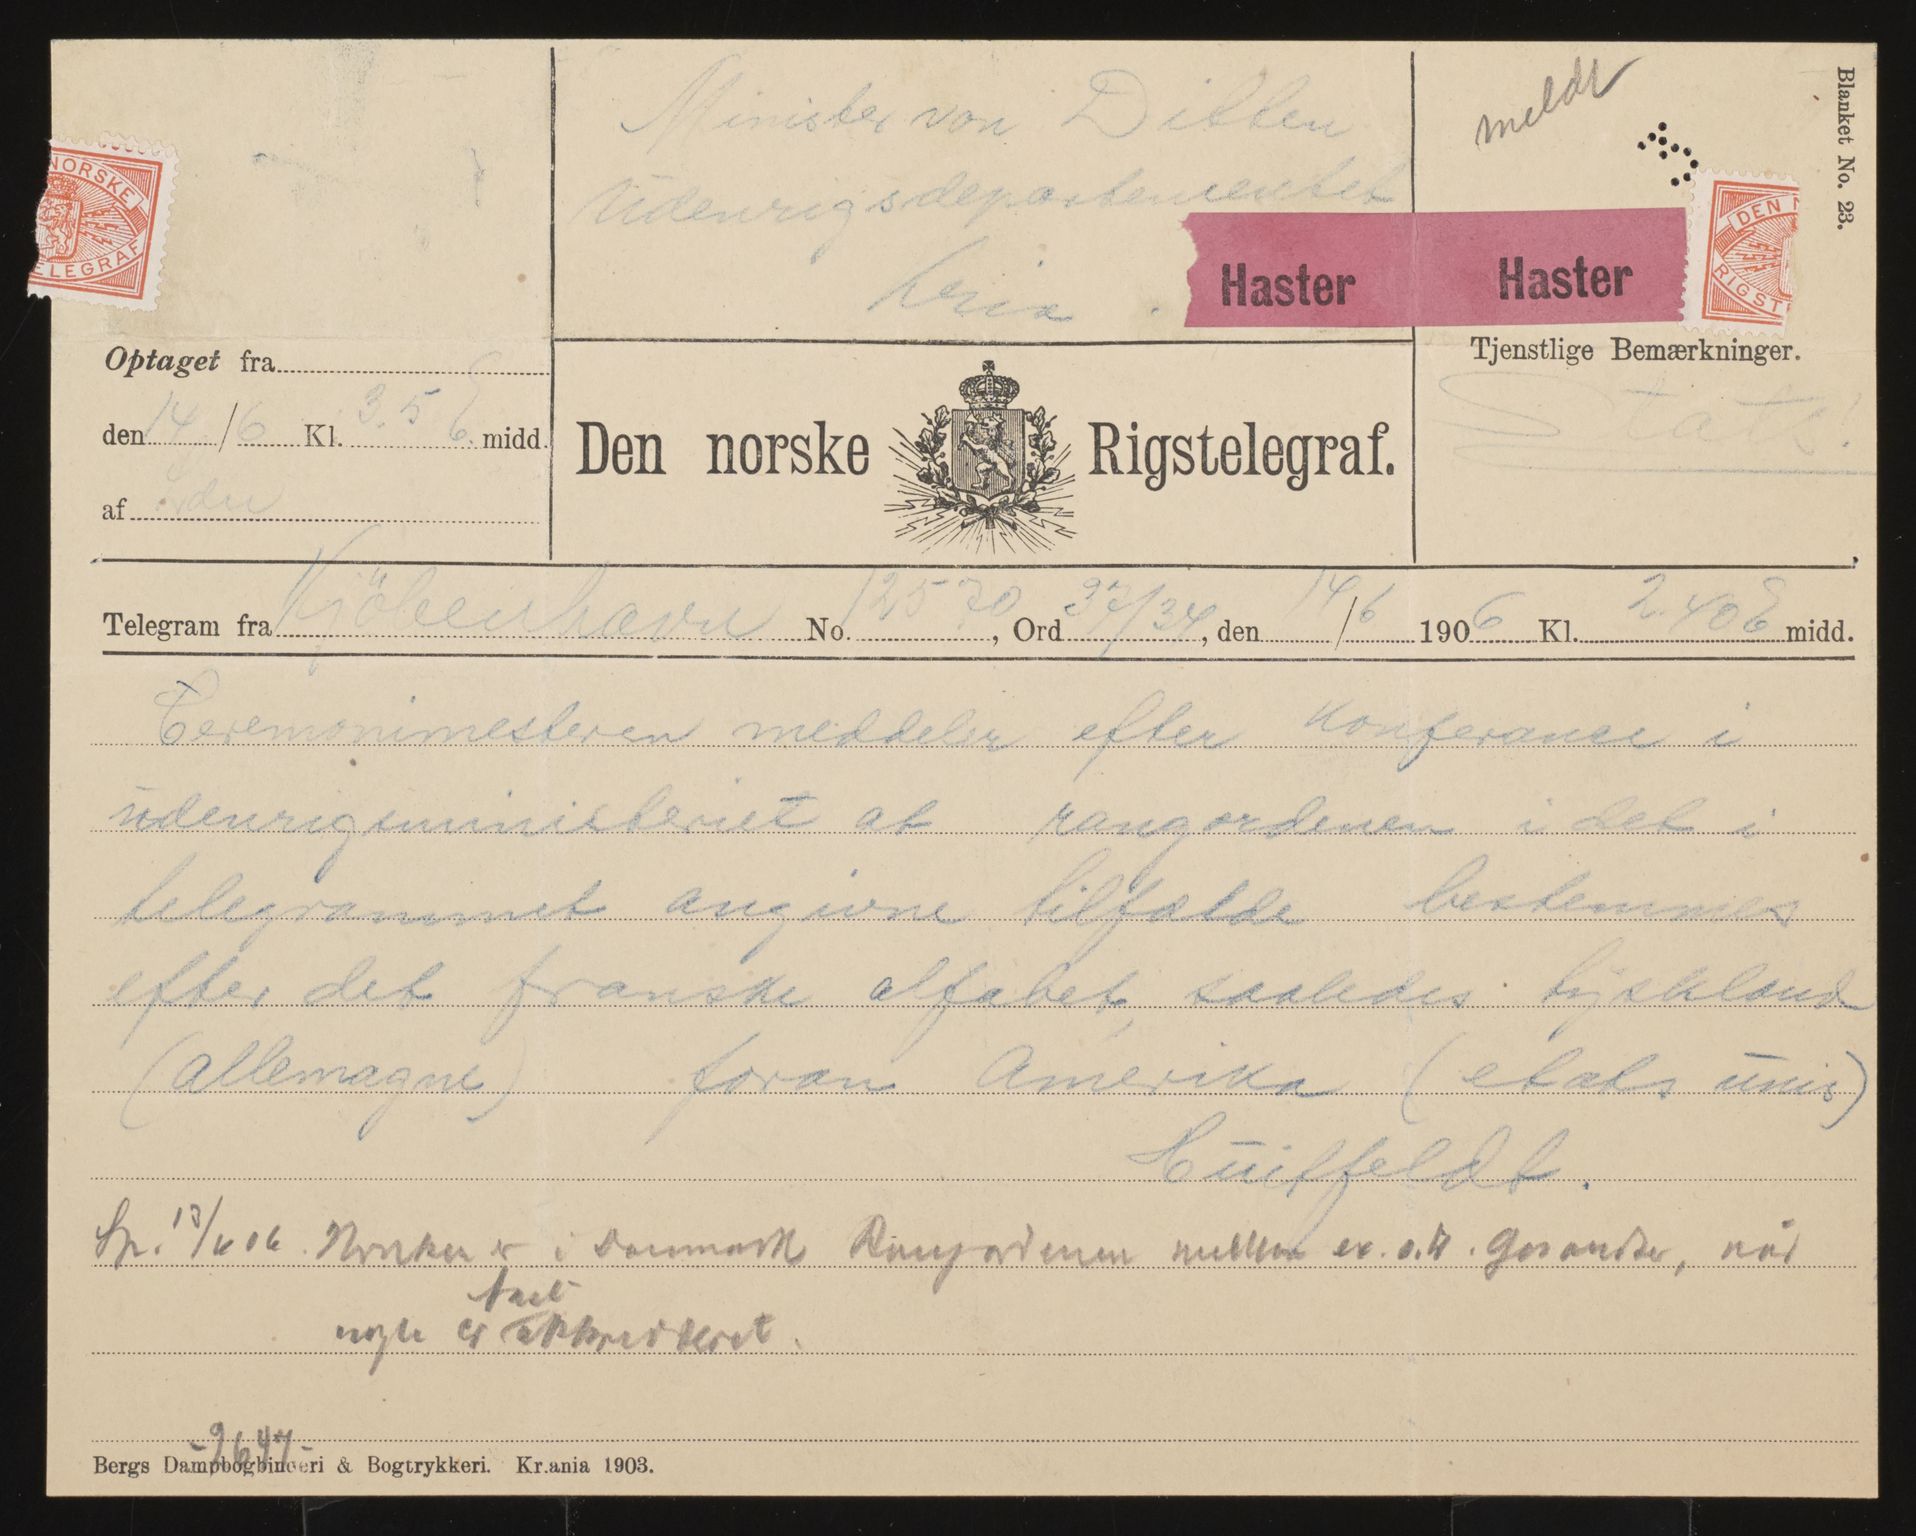 Blanket No. 23.
meldt
Minister von Ditten
Udenrigsdepartementet
kria.
NORSKE
TELEGRAF
Haster Haster
DEN N
RIGST
Optaget fra
den 14/6 Kl. 3.5 E midd.
af
Den norske Rigstelegraf.
Tjenstlige Bemærkninger.
Stats!
Telegram fra Kjöbenhavn No. 12570, Ord 37/34, den 14/6 1906 Kl. 2.40 E midd.
Ceremonimesteren meddeler efter konferance i
udenrigsministeriet at rangordenen i det i
telegrammet angivne tilfælde bestemmes
efter det franske alfabet, saaledes tyskland
(allemagne) foran Amerika (etats unis)
Huitfeldt.
Sp. 13/6 06. Hvorken er i Danmark Rangordenen mellem ex. o. b. Gesandter, når
nogle er akkrediteret.
-2647-
Bergs Dampbogbinderi & Bogtrykkeri. Kr.ania 1903.